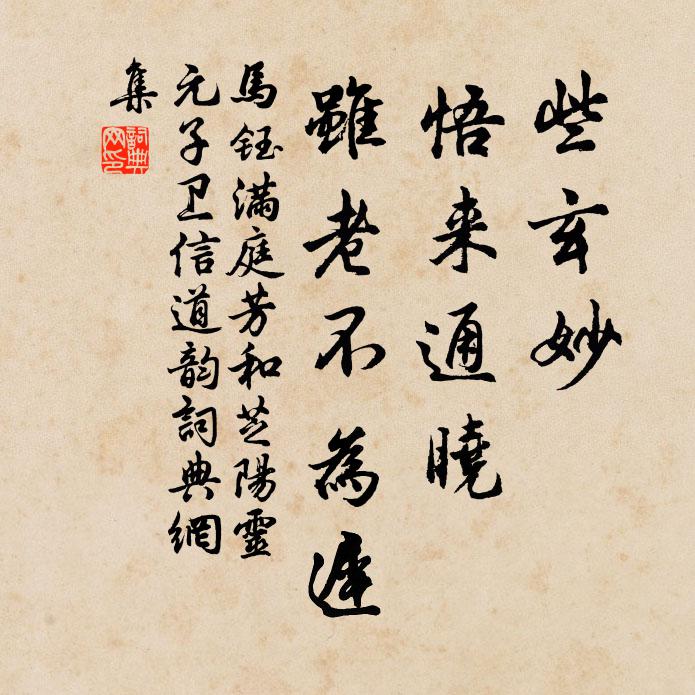 些玄妙
悟来通曉
雖老不為遲
馬鈺滿庭芳和芝陽靈
元子卫信道韵詞典網
集
詞典
网印